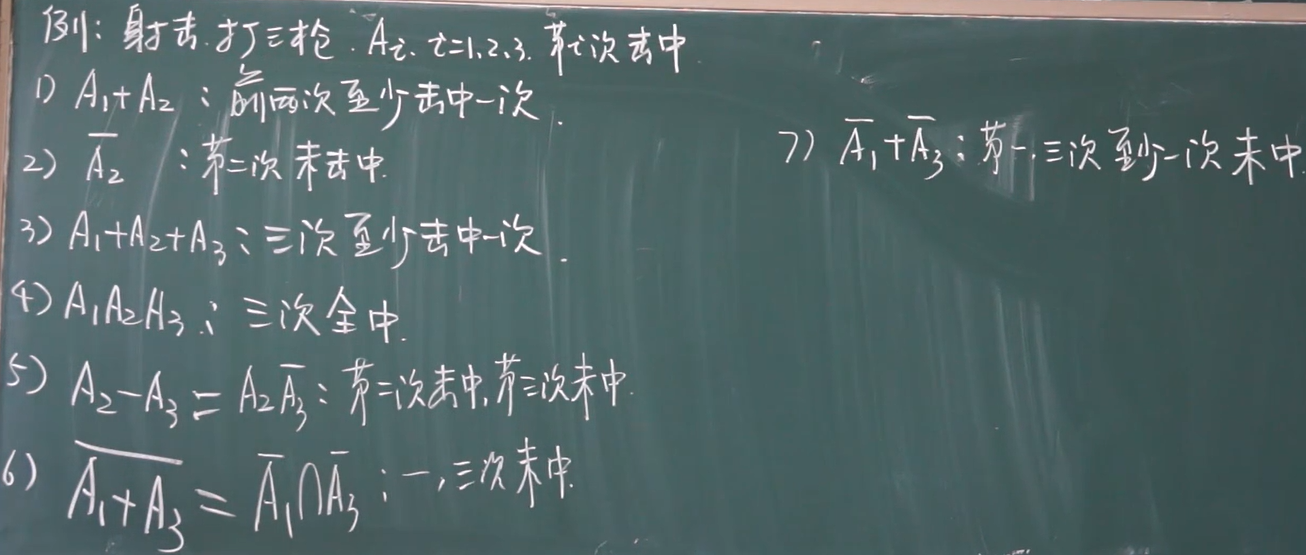 例:射击.打三枪.Aᵢ.i=1,2,3.第i次击中
1) A₁+A₂:前两次至少击中一次.
2) A̅₂:第二次未击中.
3) A₁+A₂+A₃:三次至少击中一次.
4) A₁A₂A₃:三次全中.
5) A₂-A₃=A₂A̅₃:第二次击中,第三次未中.
6) \overline{A₁+A₃}=A̅₁∩A̅₃:一,三次未中.
7) A̅₁+A̅₃:第一,三次至少一次未中.